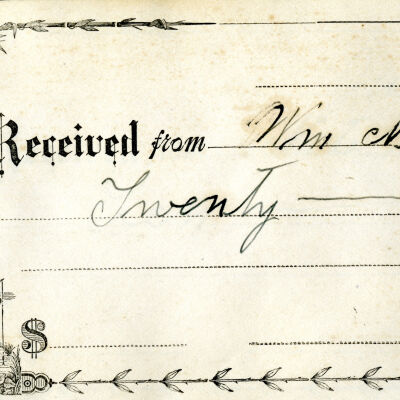 Received from Wm
Twenty
$